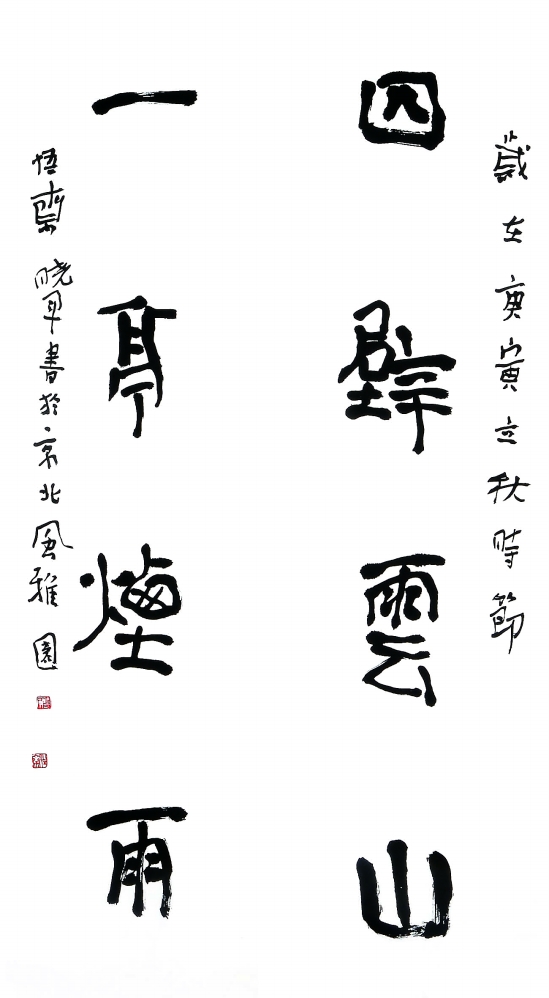 歲在庚寅立秋時節
四壁雲山
一亭煙雨
悟齋曉軍書於京北風雅園